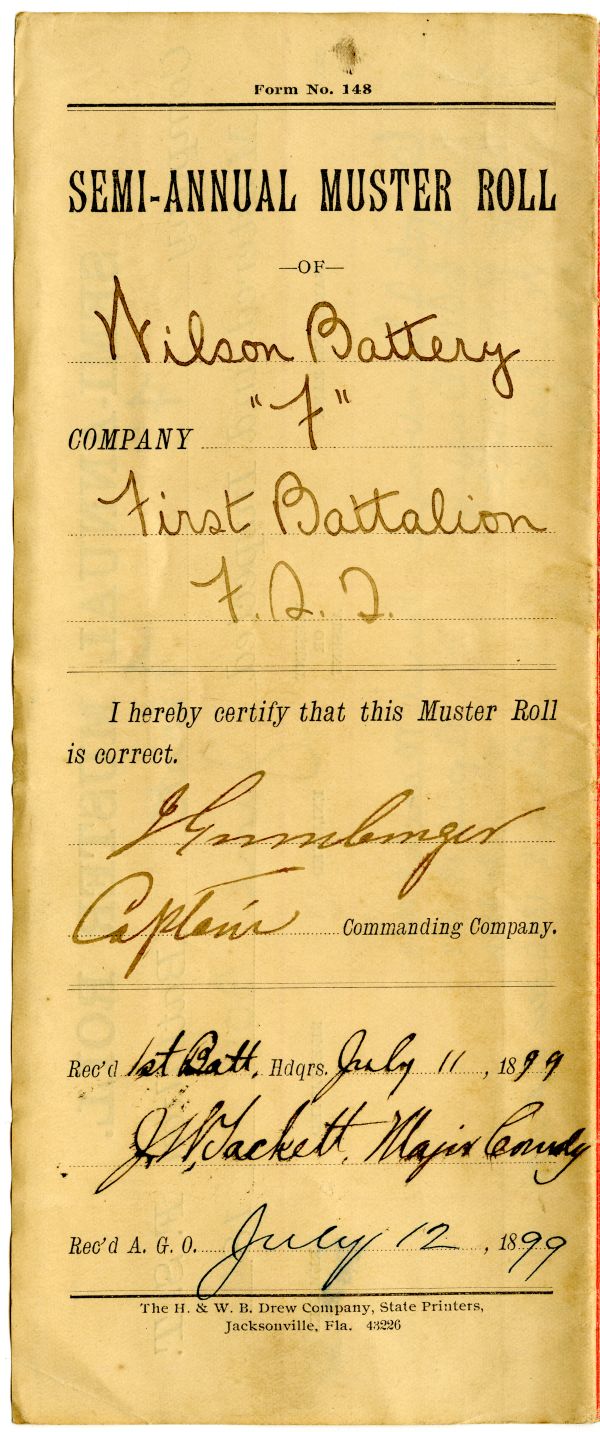 Form No. 148
SEMI-ANNUAL MUSTER ROLL
—OF—
Wilson Battery
COMPANY "F"
First Battalion
F.S.T.
I hereby certify that this Muster Roll
is correct.
J
Captain Commanding Company.
Rec'd 1st Batt, Hdqrs. July 11, 1899
J.W. Sackett, Major Comdg
Rec'd A. G. O. July 12, 1899
The H. & W. B. Drew Company, State Printers,
Jacksonville, Fla. 43226